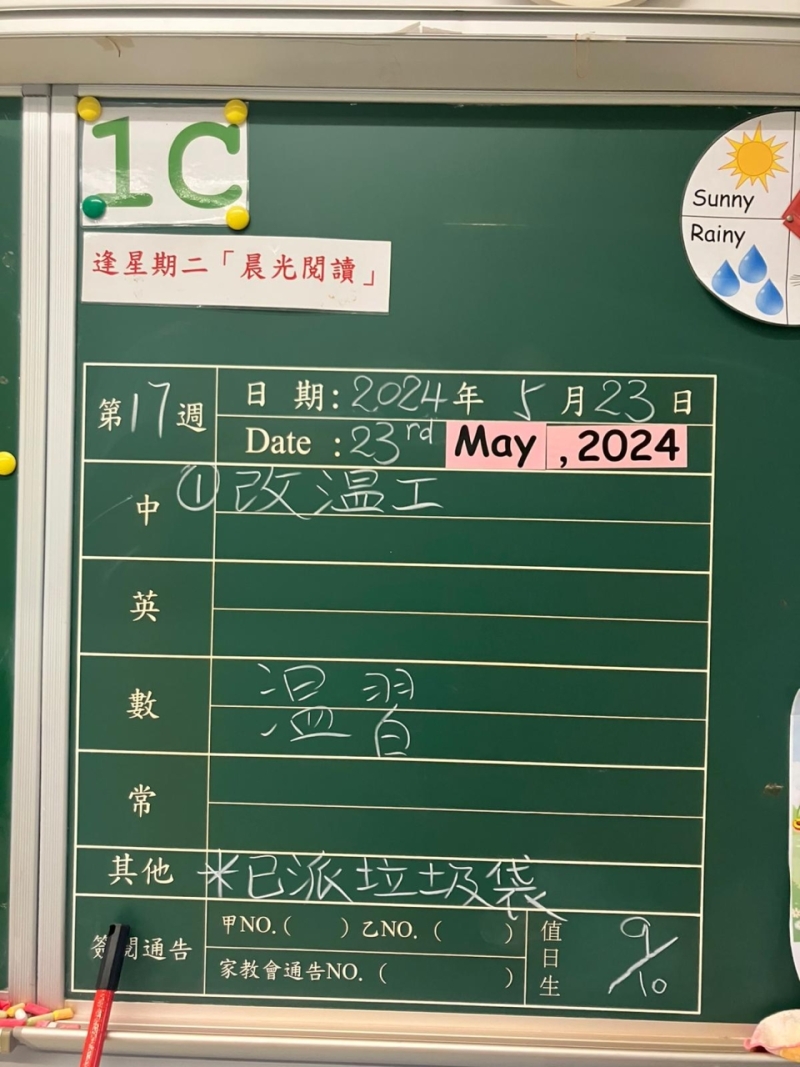 1C
逢星期二「晨光閱讀」
Sunny
Rainy
第17週
日期:2024年5月23日
Date :23rd May , 2024
中 ①改溫工
英
數 溫習
常
其他 *已派垃圾袋
簽閱通告
甲NO.( ) 乙NO. ( )
家教會通告NO. ( )
值日生 9/10